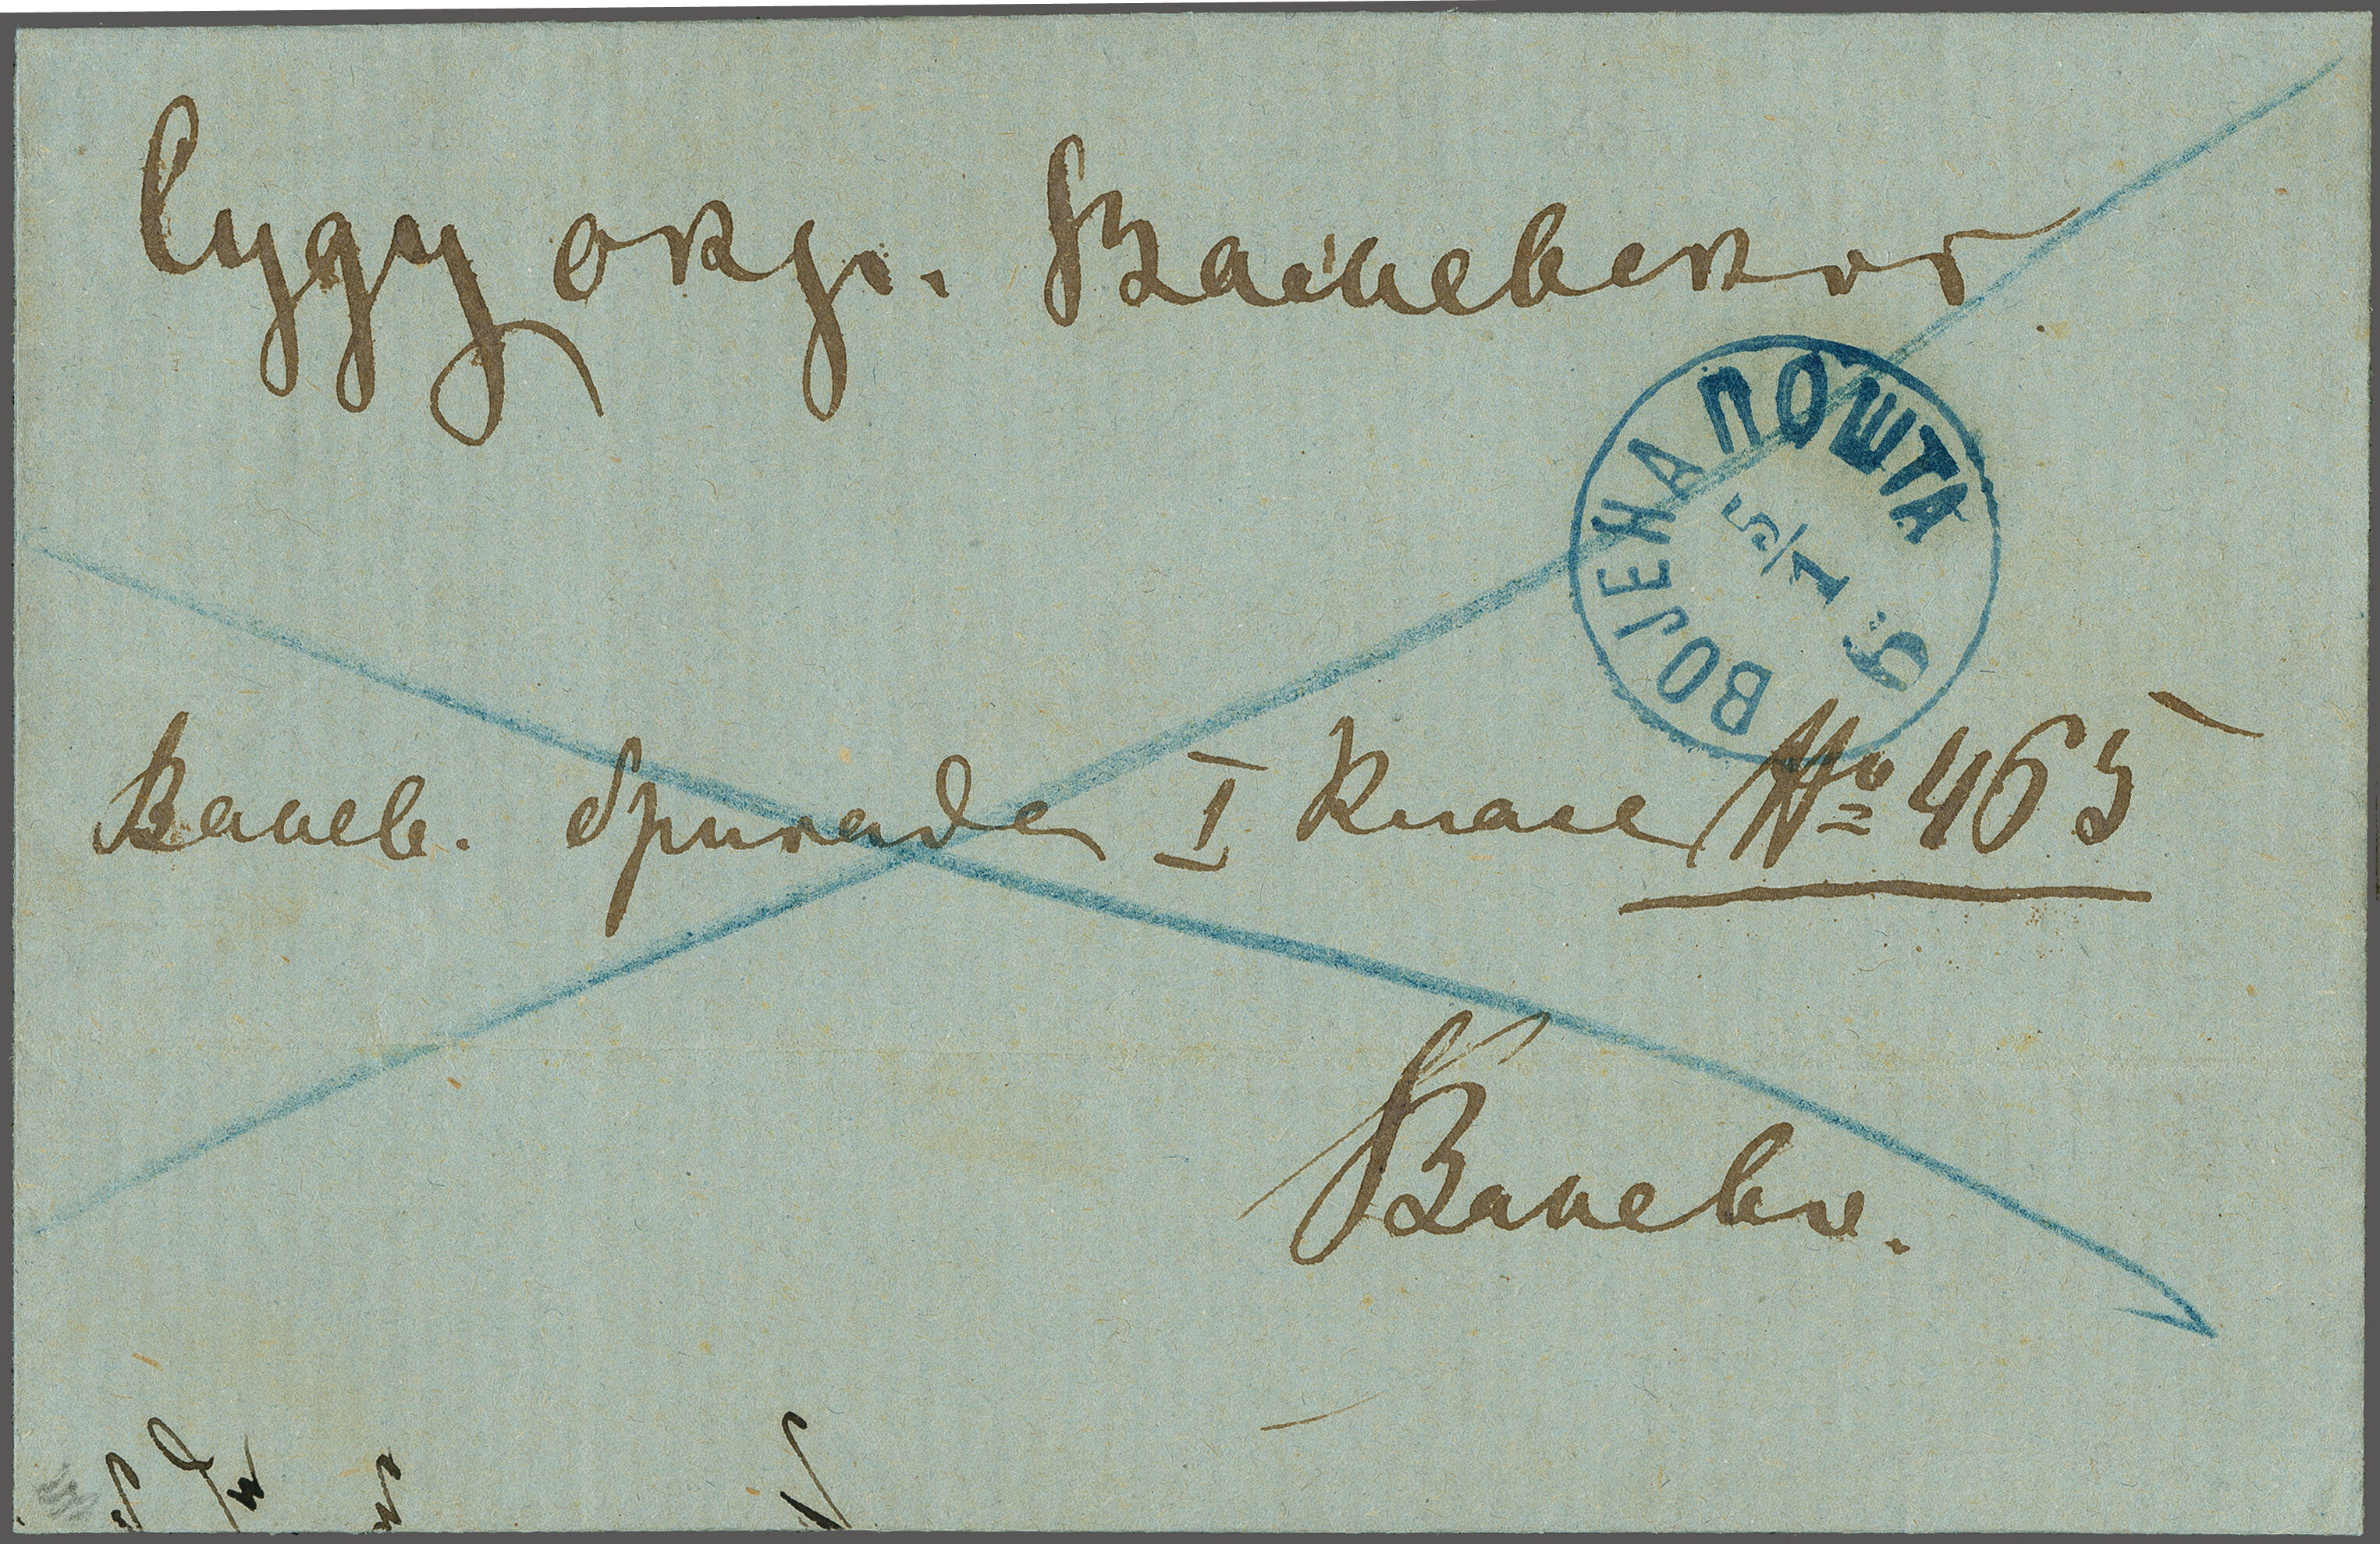 Суду окр. Ваљевског
ВОЈЕНА ПОШТА
5/1
Ваљев. бригаде I класе № 465
Ваљево.